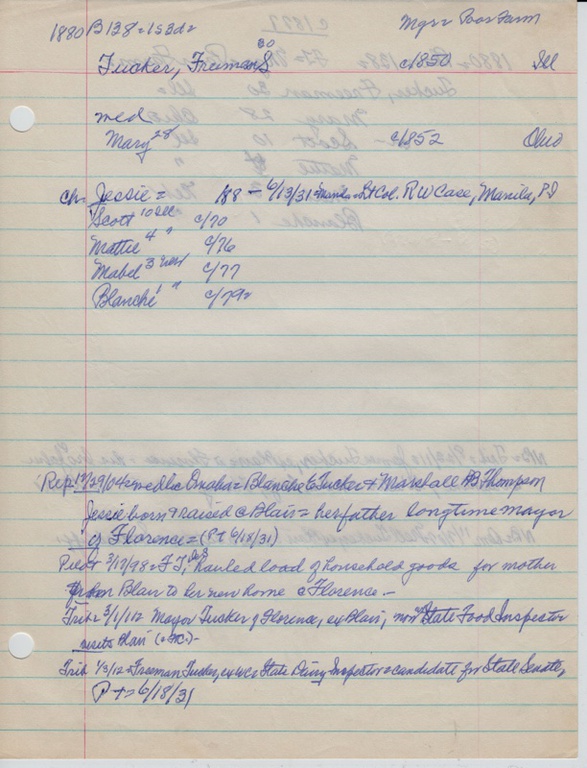 1880 B 138 = 1sBd=
Mgr = Poor Farm
Tucker, Freeman S 30 c1850 Ill
wed
Mary 28 c1852 Ohio
Chn Jessie = 188 - 6/13/31 = Manila = Lt Col. R W Case, Manila, PI
Scott 10 Ill c/70
Mattie 4 " c/76
Mabel 3 Nebr c/77
Blanche 1 " c/79
Rep. 12/29/04 = wed c Omaha = Blanche C Tucker + Marshall B Thompson
Jessie born & raised c Blair = her father longtime mayor
of Florence = (PT 6/18/31)
Pilot 3/17/98 = F T, hauled load of household goods for mother
from Blair to her new home c Florence. -
Trib = 3/1/11 = Mayor Tucker of Florence, ex Blair, now State Food Inspector
visits Blair
Trib 1/3/12 = Freeman Tucker, ex WC = State Dairy Inspector = candidate for State Senate,
P T = 6/18/31